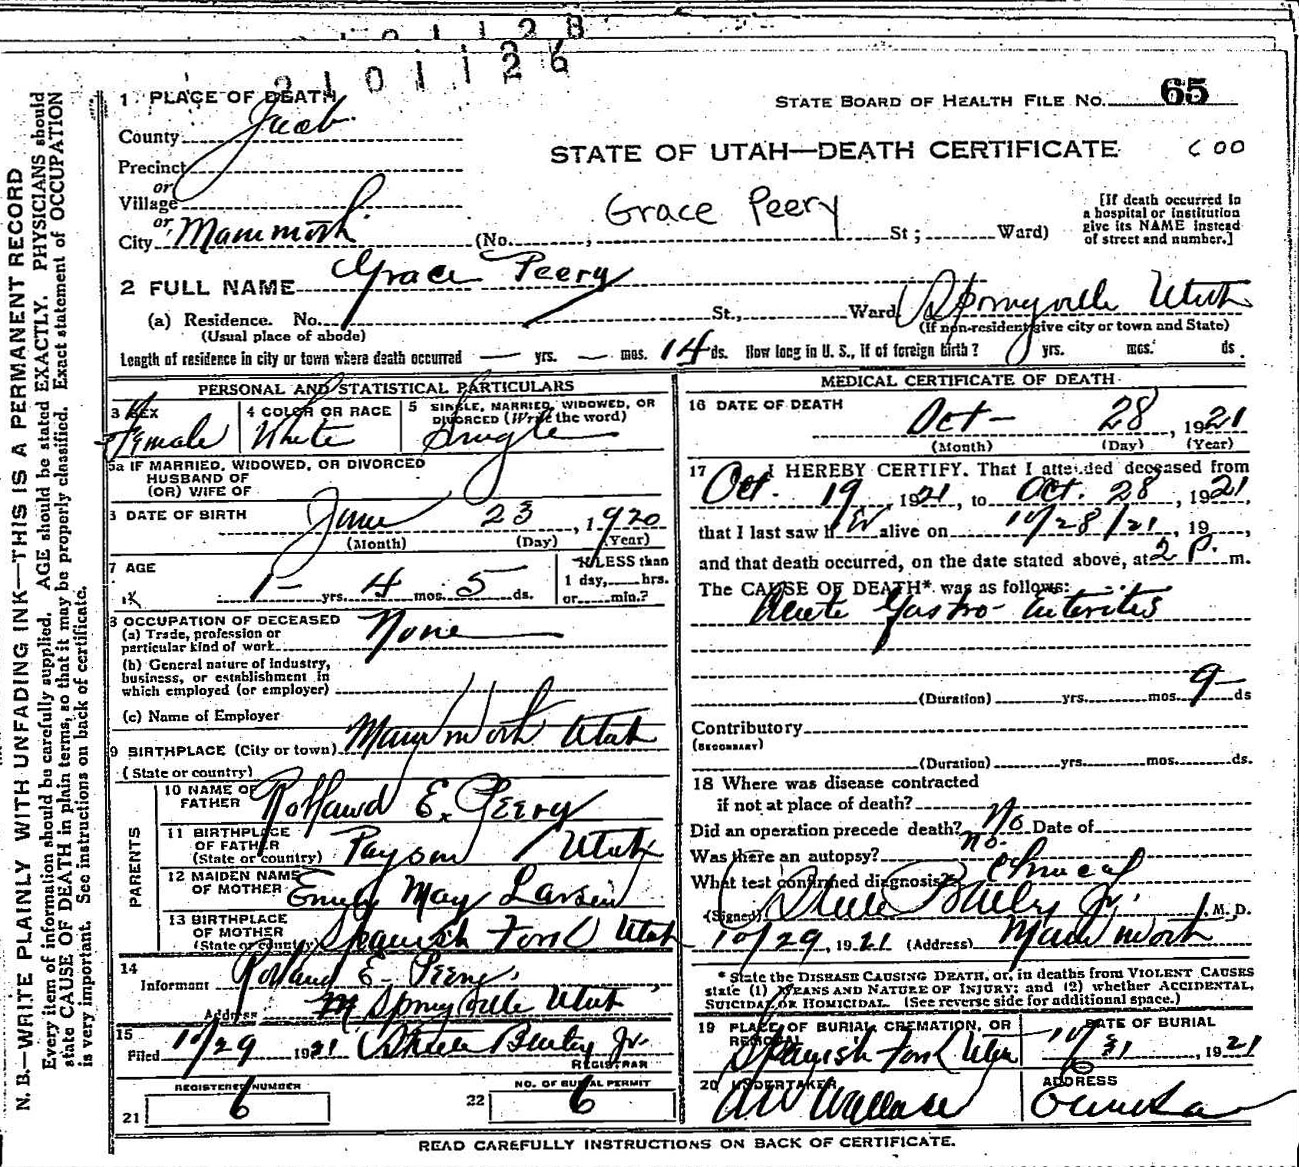 2 1 0 1 1 2 6
1 PLACE OF DEATH
County Juab
STATE BOARD OF HEALTH FILE No. 65
Precinct
or
Village
or
City Mammoth (No. , St; Ward)
STATE OF UTAH—DEATH CERTIFICATE
Grace Peery
[If death occurred in
a hospital or institution
give its NAME instead
of street and number.]
2 FULL NAME Grace Peery
(a) Residence. No. St., Ward. Springville Utah
(Usual place of abode) (If non-resident give city or town and State)
Length of residence in city or town where death occurred — yrs. — mos. 14 ds. How long in U. S., if of foreign birth? yrs. mos. ds.
PERSONAL AND STATISTICAL PARTICULARS
3 SEX
Female
4 COLOR OR RACE
White
5 SINGLE, MARRIED, WIDOWED, OR
DIVORCED (Write the word)
Single
5a IF MARRIED, WIDOWED, OR DIVORCED
HUSBAND OF
(OR) WIFE OF
6 DATE OF BIRTH June 23, 1920
(Month) (Day) (Year)
7 AGE
1 yrs. 4 mos. 5 ds.
If LESS than
1 day, hrs.
or min.?
8 OCCUPATION OF DECEASED
(a) Trade, profession or
particular kind of work None
(b) General nature of industry,
business, or establishment in
which employed (or employer)
(c) Name of Employer
9 BIRTHPLACE (City or town) Mammoth Utah
(State or country)
PARENTS
10 NAME OF
FATHER Rolland E. Peery
11 BIRTHPLACE
OF FATHER
(State or country) Payson Utah
12 MAIDEN NAME
OF MOTHER Emily May Larsen
13 BIRTHPLACE
OF MOTHER
(State or country) Spanish Fork Utah
14
Informant Rolland E. Peery
Address Springville Utah
15
Filed 10/29 1921 Steele Bailey Jr.
REGISTRAR
REGISTERED NUMBER
21 6
NO. OF BURIAL PERMIT
22 6
MEDICAL CERTIFICATE OF DEATH
16 DATE OF DEATH
Oct- 28, 1921
(Month) (Day) (Year)
17 I HEREBY CERTIFY. That I attended deceased from
Oct. 19, 1921, to Oct. 28, 1921
that I last saw her alive on 10/28/21, 19
and that death occurred, on the date stated above, at 2 P. m.
The CAUSE OF DEATH* was as follows:
Acute Gastro-Enteritis
(Duration) yrs. mos. 9 ds
Contributory
(SECONDARY)
(Duration) yrs. mos. ds.
18 Where was disease contracted
if not at place of death?
Did an operation precede death? No Date of
Was there an autopsy? No.
What test confirmed diagnosis? Clinical
(Signed) Steele Bailey Jr. M. D.
10/29, 1921 (Address) Mammoth
* State the DISEASE CAUSING DEATH, or, in deaths from VIOLENT CAUSES
state (1) MEANS AND NATURE OF INJURY; and (2) whether ACCIDENTAL,
SUICIDAL or HOMICIDAL. (See reverse side for additional space.)
19 PLACE OF BURIAL CREMATION, OR
REMOVAL
Spanish Fork Utah
DATE OF BURIAL
10/31, 1921
20 UNDERTAKER
Wallace
ADDRESS
Eureka
READ CAREFULLY INSTRUCTIONS ON BACK OF CERTIFICATE.
N. B.—WRITE PLAINLY WITH UNFADING INK—THIS IS A PERMANENT RECORD
Every item of information should be carefully supplied. AGE should be stated EXACTLY. PHYSICIANS should
state CAUSE OF DEATH in plain terms, so that it may be properly classified. Exact statement of OCCUPATION
is very important. See instructions on back of certificate.